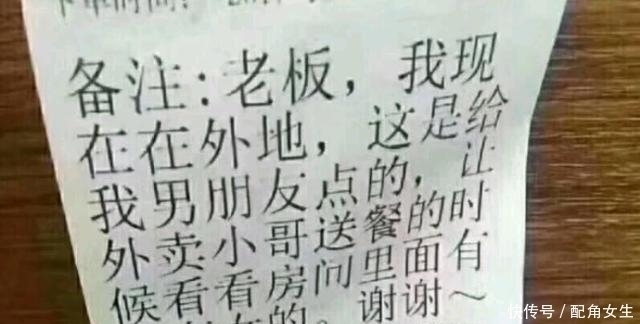 备注：老板，我现
在在外地，这是给
我男朋友点的，让
外卖小哥送餐的时
候看看房间里面有
的。谢谢～
快传号／配角女生